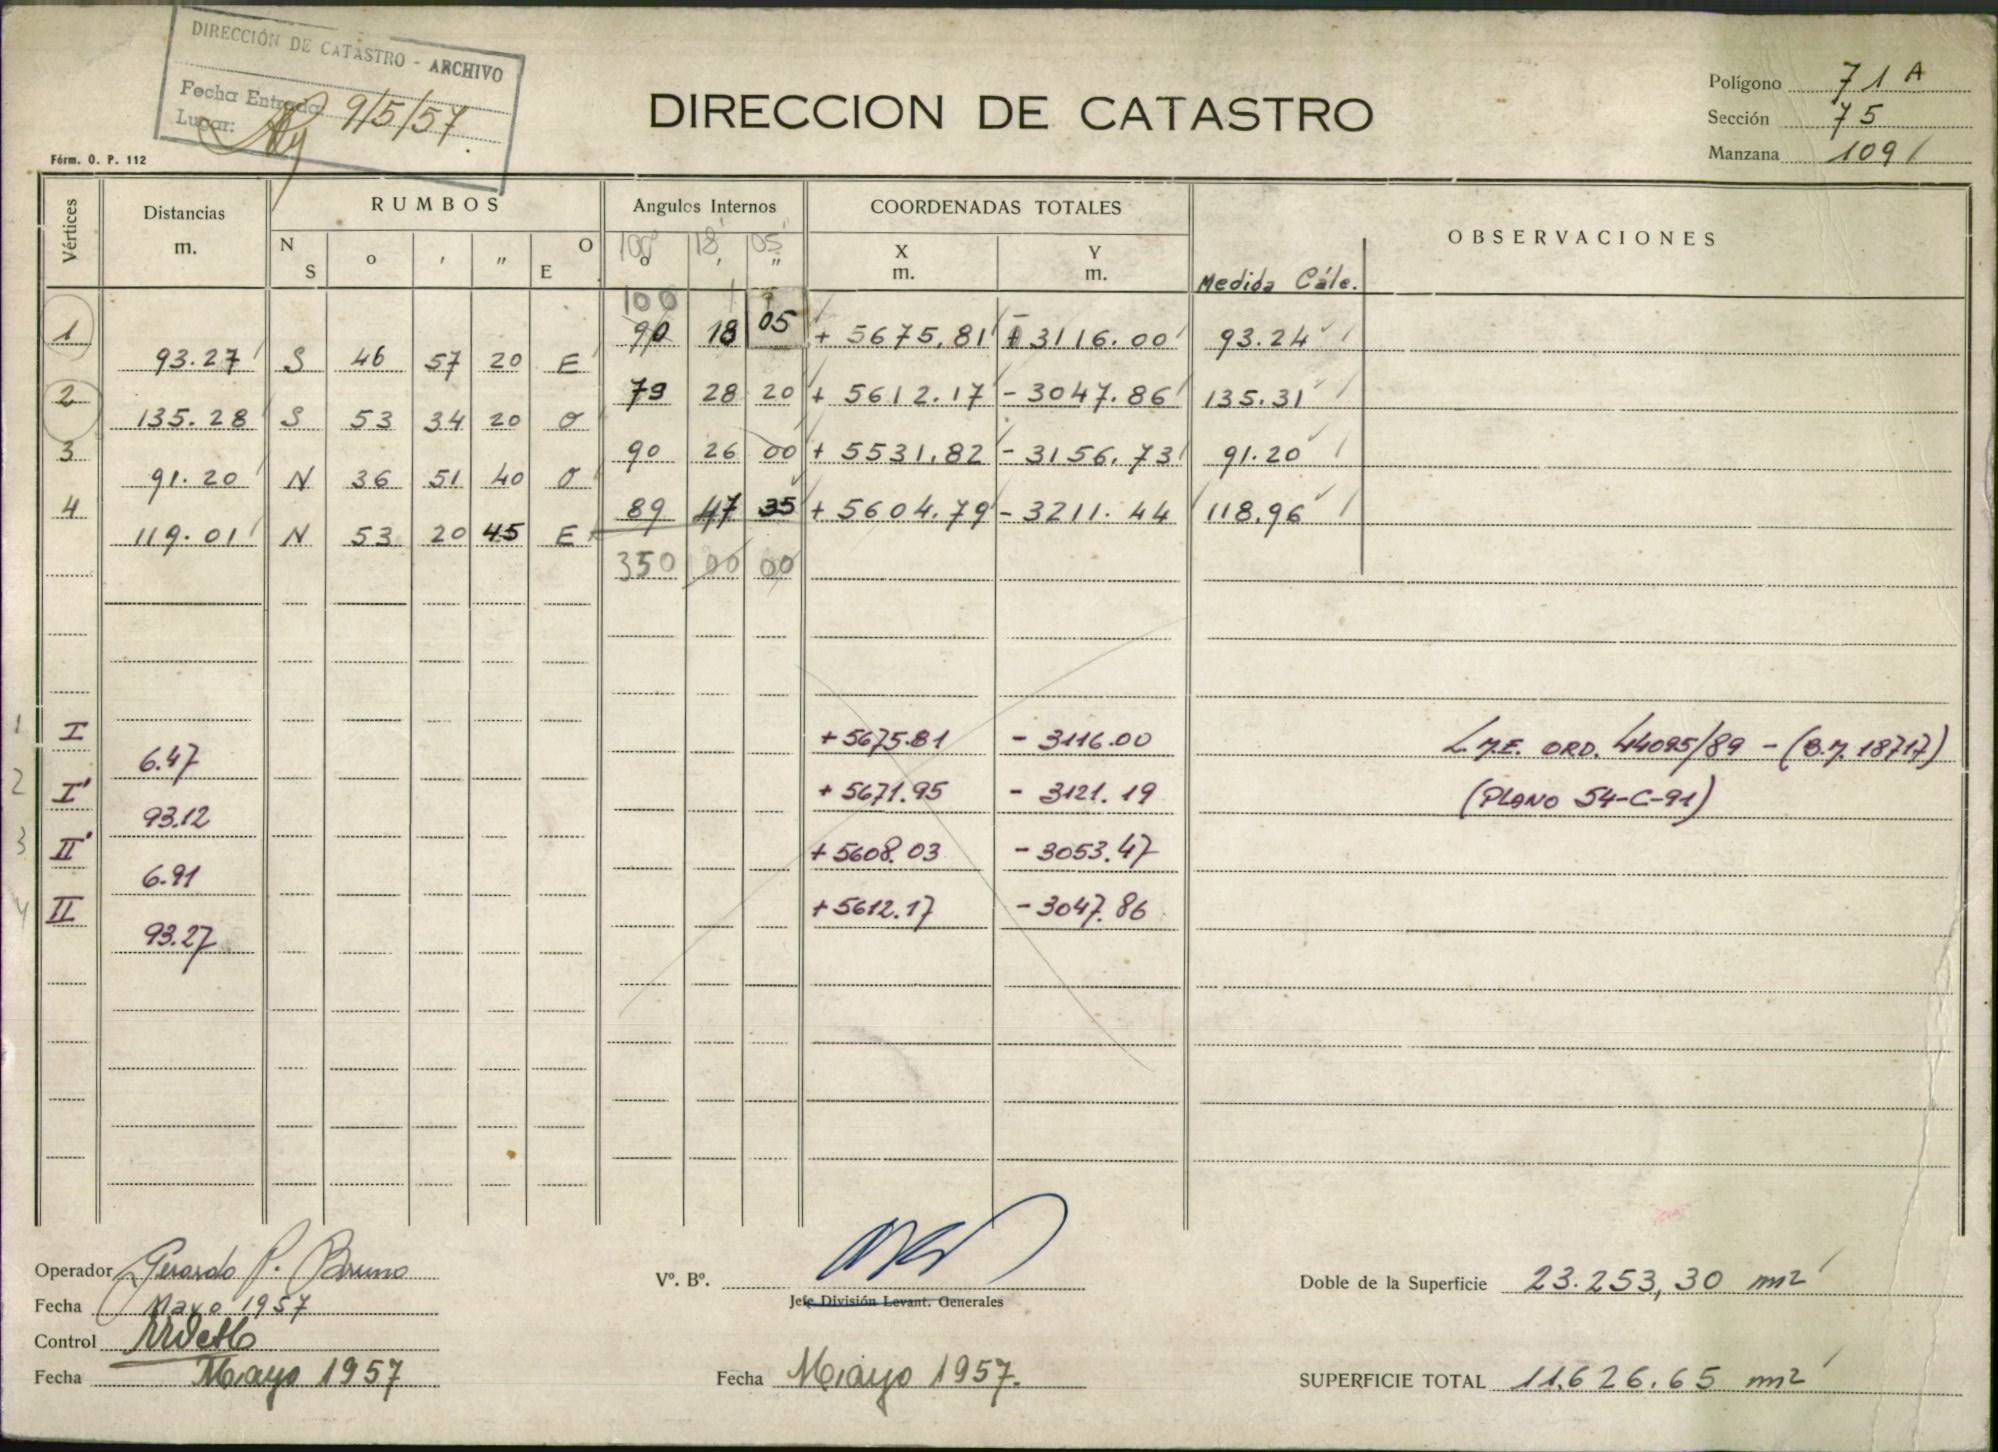 DIRECCIÓN DE CATASTRO - ARCHIVO
Fecha Entrada 9/5/57.
Lugar:
DIRECCION DE CATASTRO
Polígono 71 A
Sección 75
Manzana 109
Fórm. O. P. 112
Vértices Distancias m. RUMBOS Angulos Internos COORDENADAS TOTALES OBSERVACIONES
N S o ' " O E o ' " X m. Y m. Medida Cálc.
100 18 05
100
1 90 18 05 + 5675,81 - 3116.00 93.24
93.27 S 46 57 20 E
2 79 28 20 + 5612.17 - 3047.86 135.31
135.28 S 53 34 20 O
3 90 26 00 + 5531.82 - 3156.73 91.20
91.20 N 36 51 40 O
4 89 47 35 + 5604.79 - 3211.44 118.96
119.01 N 53 20 45 E
350 00 00
1 I +5675.81 - 3116.00 L.M.E. ORD. 44095/89 - (B.M. 18717)
6.47
2 I' +5671.95 - 3121.19 (PLANO 54-C-91)
93.12
3 II' +5608.03 - 3053.47
6.91
4 II +5612.17 - 3047.86
93.27
Operador Gerardo P. Bruno
Fecha Mayo 1957
Control
Fecha Mayo 1957
Vº. Bº.
Jefe División Levant. Generales
Fecha Mayo 1957.
Doble de la Superficie 23.253,30 m2
SUPERFICIE TOTAL 11.626.65 m2